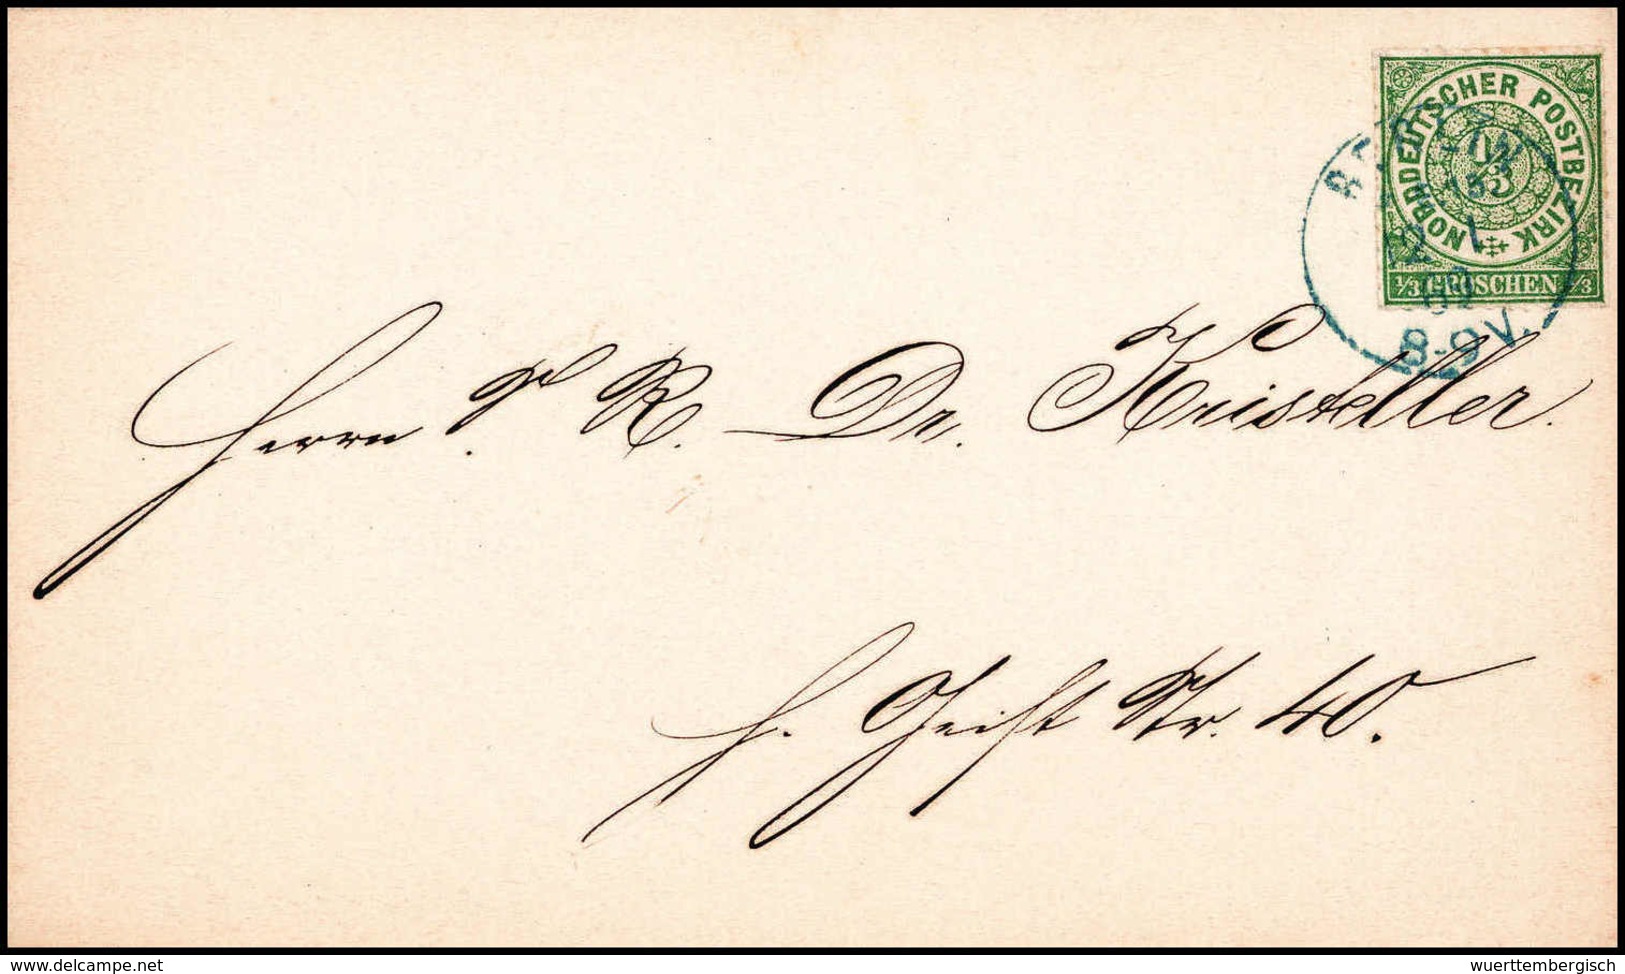 NORDDEUTSCHER POSTBEZIRK
1/3
1/3 GROSCHEN 1/3
BERLIN
1
69
8-9 V.
Herrn S. R. Dr. Kristeller.
H. Geist Str. 40.
www.delcampe.net
wuerttembergisch